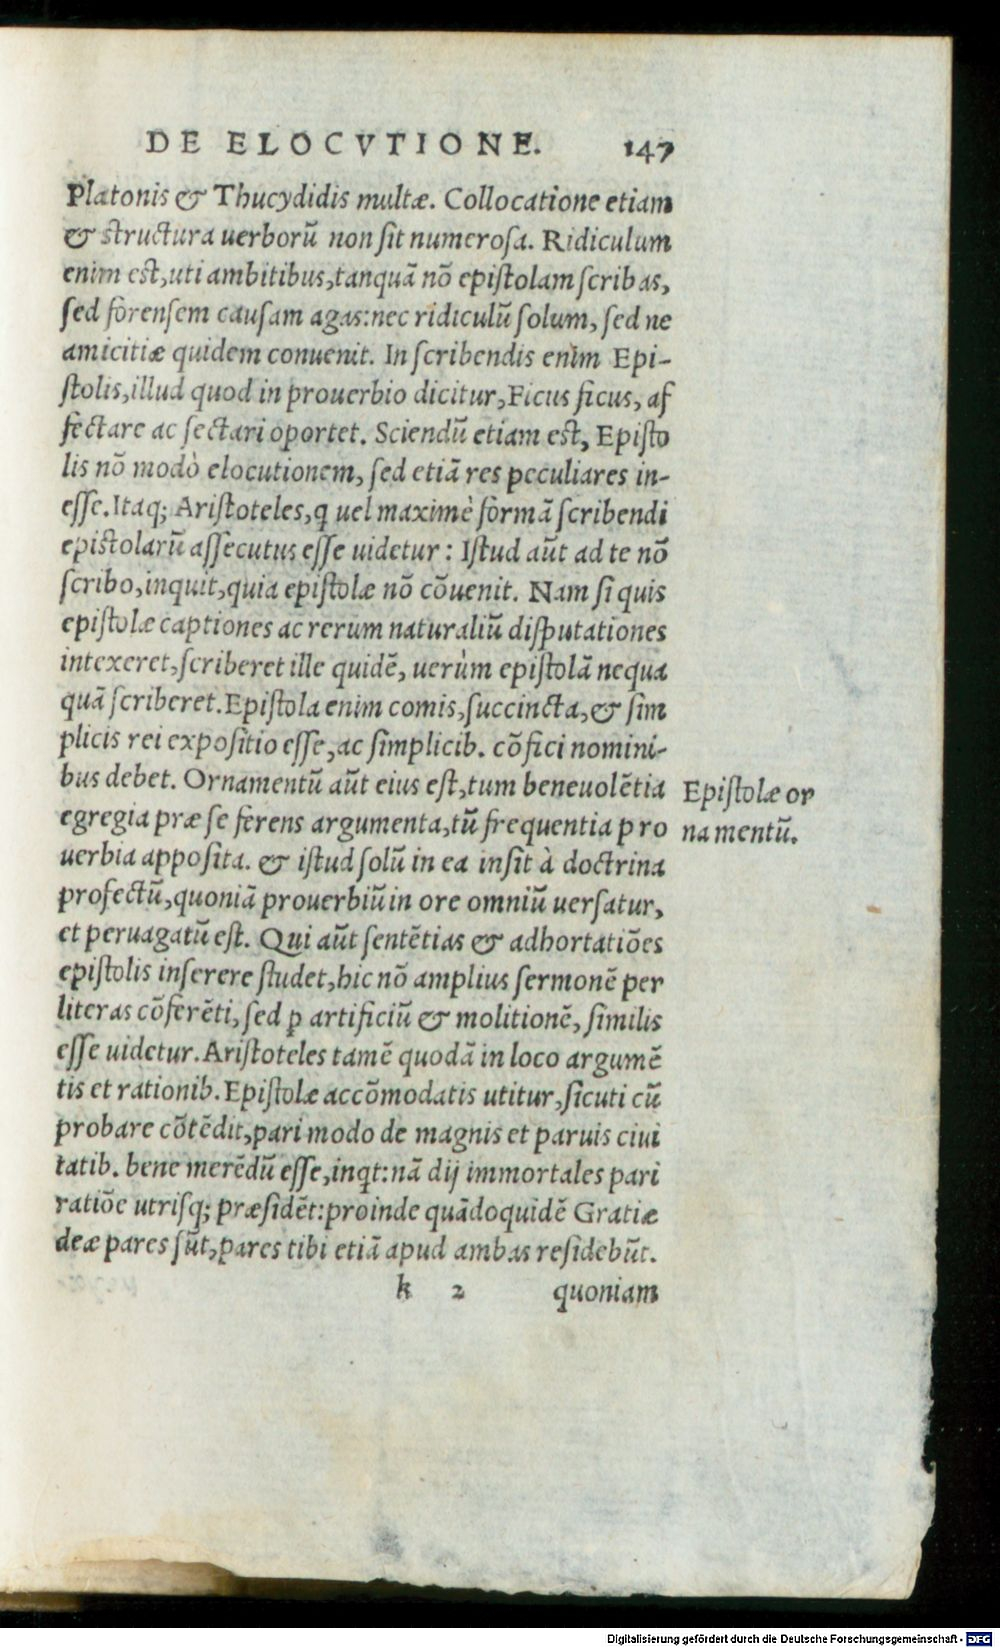 DE ELOCVTIONE. 147
Platonis & Thucydidis multæ. Collocatione etiam
& structura uerborū non sit numerosa. Ridiculum
enim est, uti ambitibus, tanquā nō epistolam scribas,
sed forensem causam agas: nec ridiculū solum, sed ne
amicitiæ quidem conuenit. In scribendis enim Epi-
stolis, illud quod in prouerbio dicitur, Ficus ficus, af
fectare ac sectari oportet. Sciendū etiam est, Episto
lis nō modò elocutionem, sed etiā res peculiares in-
esse. Itaq; Aristoteles, q uel maximè formā scribendi
epistolarū assecutus esse uidetur: Istud aūt ad te nō
scribo, inquit, quia epistolæ nō cōuenit. Nam si quis
epistolæ captiones ac rerum naturaliū disputationes
intexeret, scriberet ille quidē, uerùm epistolā nequa
quā scriberet. Epistola enim comis, succincta, & sim
plicis rei expositio esse, ac simplicib. cōfici nomini-
bus debet. Ornamentū aūt eius est, tum beneuolētia
egregia præ se ferens argumenta, tū frequentia pro
uerbia apposita. & istud solū in ea insit à doctrina
profectū, quoniā prouerbiū in ore omniū uersatur,
et peruagatū est. Qui aūt sentētias & adhortatiōes
epistolis inserere studet, hic nō amplius sermonē per
literas cōferēti, sed ꝑ artificiū & molitionē, similis
esse uidetur. Aristoteles tamē quodā in loco argumē
tis et rationib. Epistolæ accōmodatis utitur, sicuti cū
probare cōtēdit, pari modo de magnis et paruis ciui
tatib. bene merēdū esse, inqt: nā dij immortales pari
ratiōe utrisq; præsidēt: proinde quādoquidē Gratiæ
deæ pares sūt, pares tibi etiā apud ambas residebūt.
k 2 quoniam
Epistolæ or
namentū.
Digitalisierung gefördert durch die Deutsche Forschungsgemeinschaft - DFG